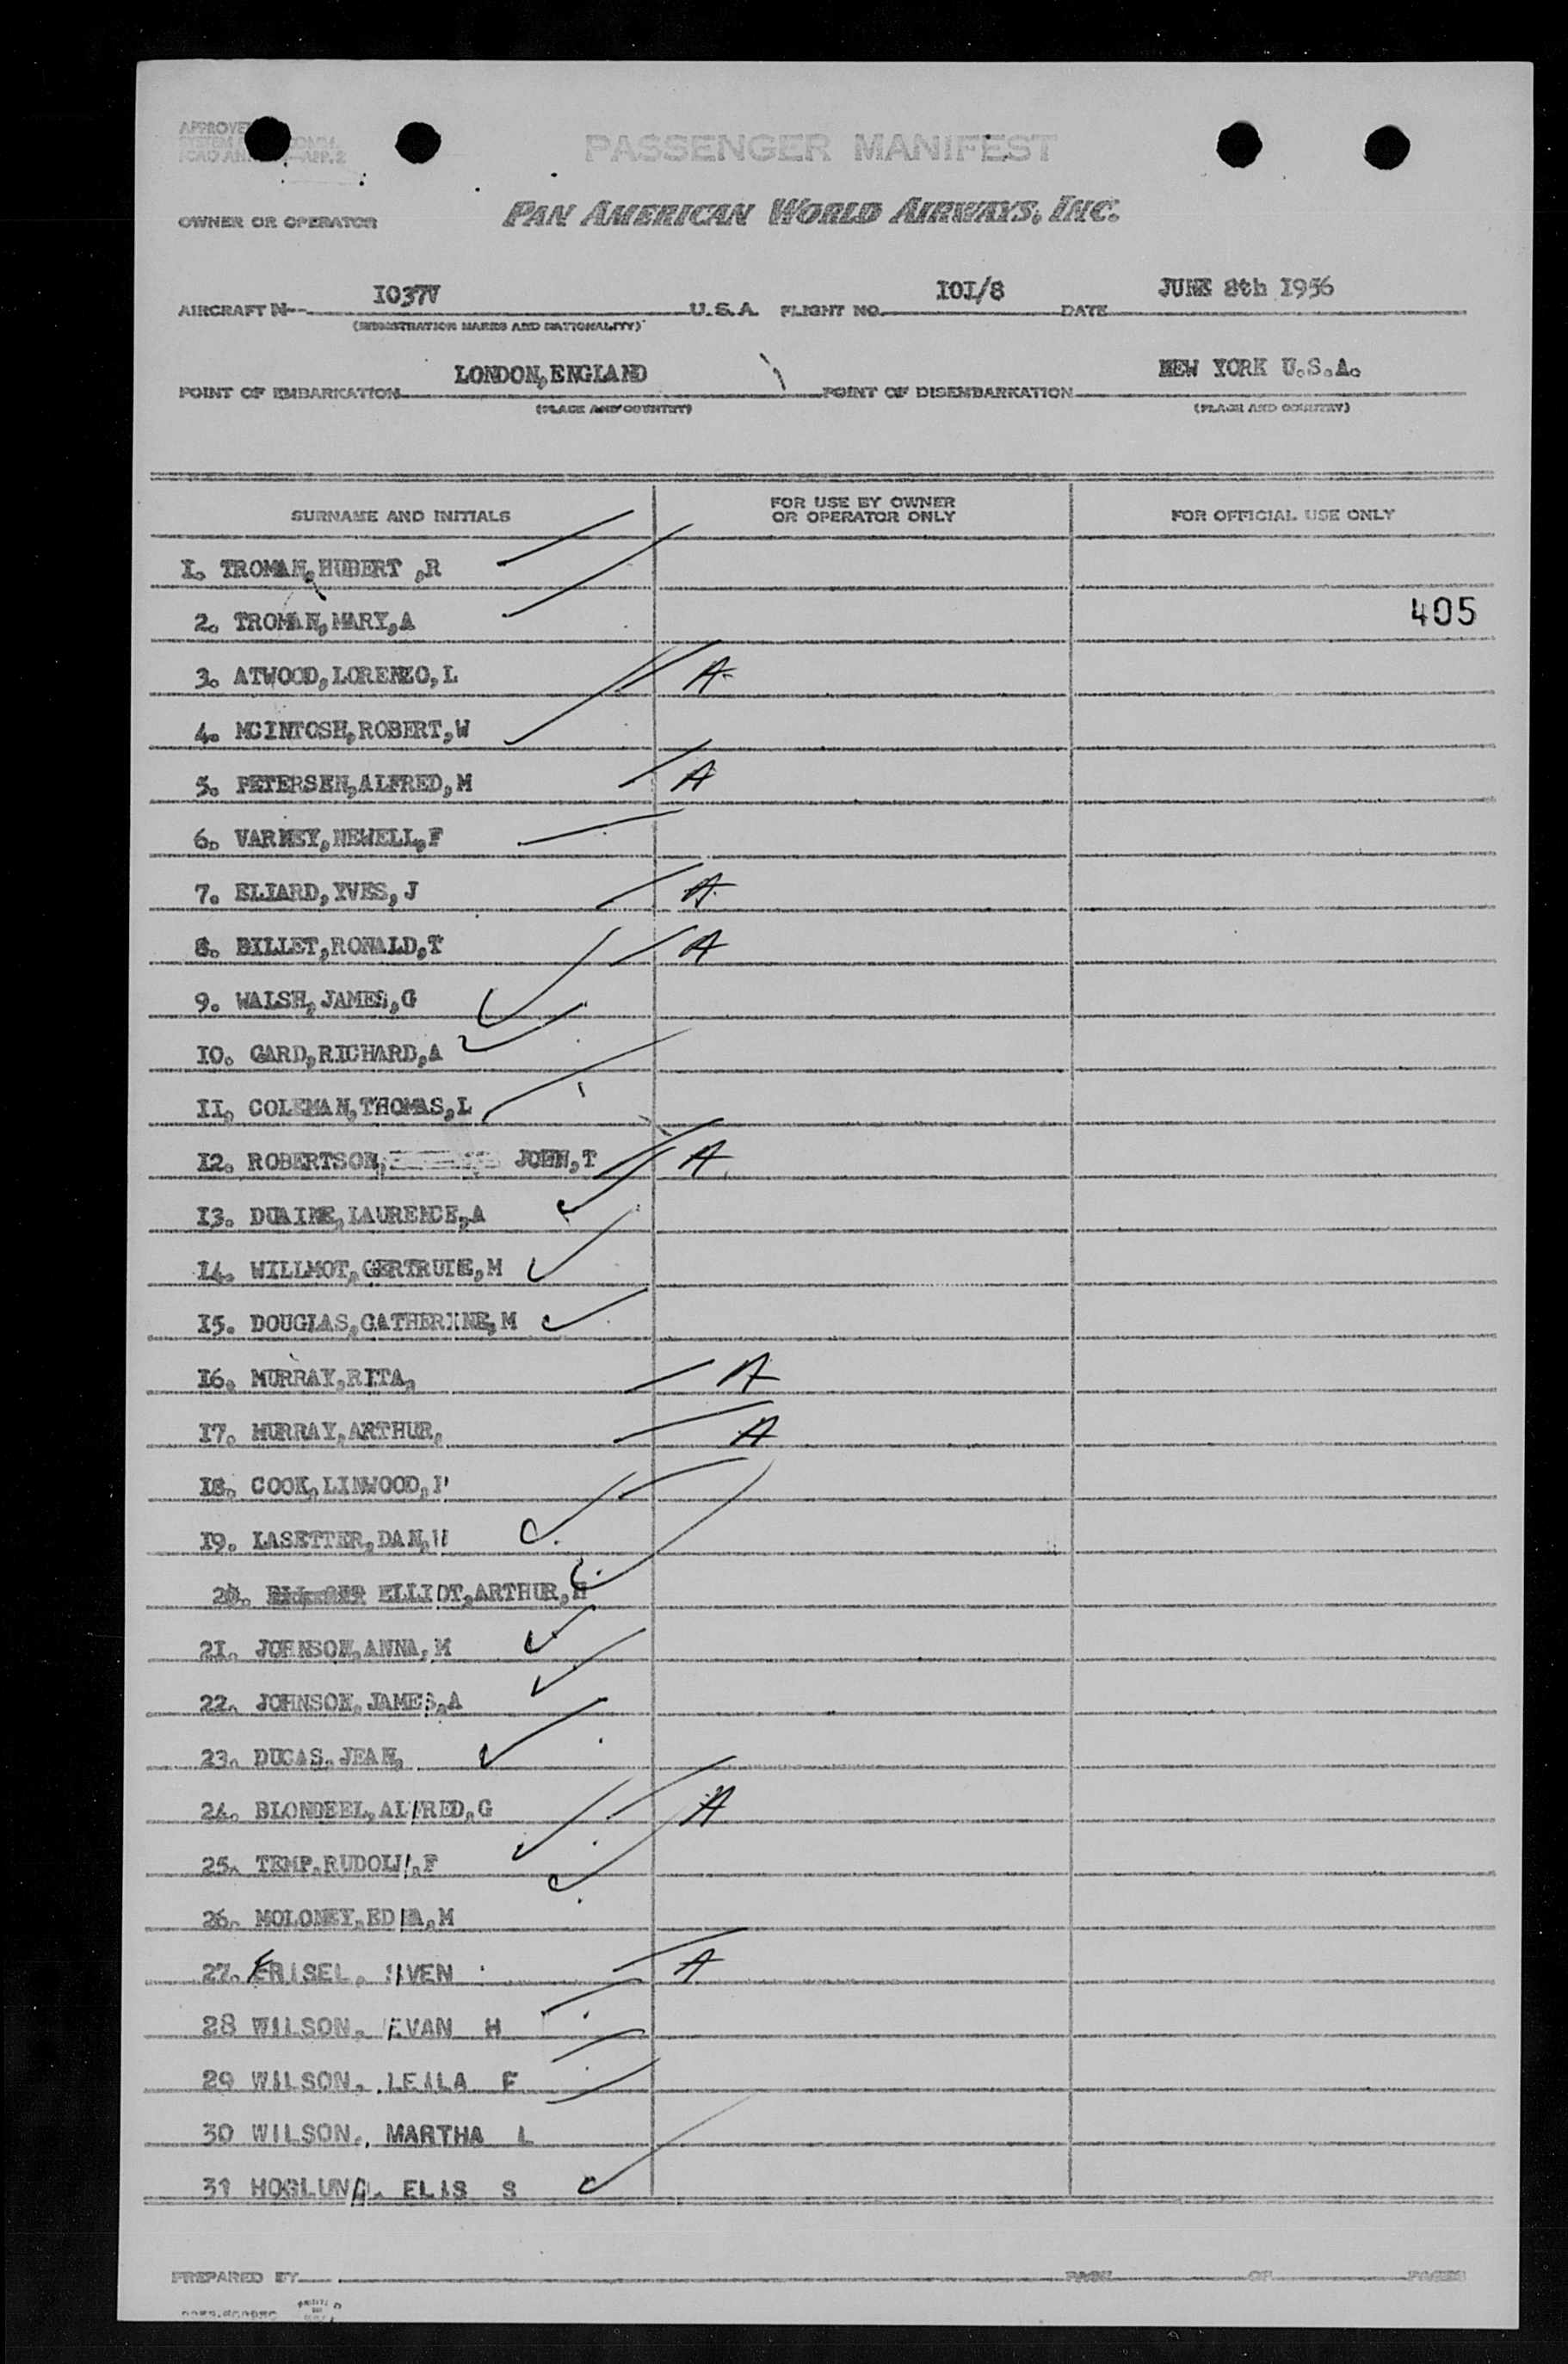 PASSENGER MANIFEST
OWNER OR OPERATOR PAN AMERICAN WORLD AIRWAYS, INC.
AIRCRAFT N- I037V U.S.A. FLIGHT NO. I0I/8 DATE JUNE 8th I956
(REGISTRATION MARKS AND NATIONALITY)
POINT OF EMBARKATION LONDON,ENGLAND POINT OF DISEMBARKATION NEW YORK U.S.A.
(PLACE AND COUNTRY) (PLACE AND COUNTRY)
SURNAME AND INITIALS FOR USE BY OWNER OR OPERATOR ONLY FOR OFFICIAL USE ONLY
I. TROMAN,HUBERT ,R
2. TROMAN,MARY,A 405
3. ATWOOD,LORENZO,L A
4. MCINTOSH,ROBERT,W
5. PETERSEN,ALFRED,M A
6. VARNEY,NEWELL,F
7. ELIARD,YVES,J A
8. BILLET,RONALD,T A
9. WALSH,JAMES,G
I0. GARD,RICHARD,A
II. COLEMAN,THOMAS,L
I2. ROBERTSON, JOHN,T A
I3. DUAINE,LAURENCE,A
I4. WILLMOT,GERTRUDE,M
I5. DOUGLAS,CATHERINE,M
I6. MURRAY,RITA, A
I7. MURRAY,ARTHUR, A
I8. COOK,LINWOOD,
I9. LASETTER,DAN,H
20. ELLIOT,ARTHUR,H
2I. JOHNSON,ANNA,M
22. JOHNSON,JAMES,A
23. DUCAS,JEAN,
24. BLONDEEL,ALFRED,G A
25. TEMP,RUDOLF,F
26. MOLONEY,EDNA,M
27. FRISEL, SVEN A
28 WILSON, EVAN H
29 WILSON, LEILA F
30 WILSON, MARTHA L
31 HOGLUND, ELIS S
PREPARED BY PAGE OF PAGES